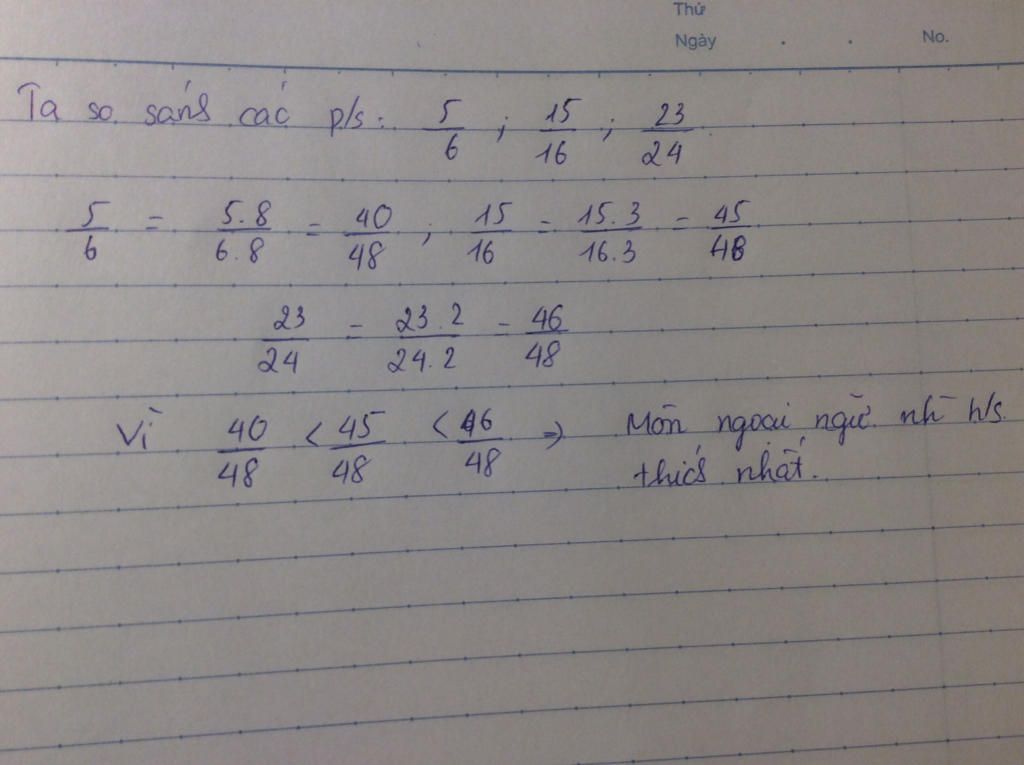 Thứ
Ngày . . No.
Ta so sánh các p/s: 5/6 ; 15/16 ; 23/24
5/6 = 5.8/6.8 = 40/48 ; 15/16 = 15.3/16.3 = 45/48
23/24 = 23.2/24.2 = 46/48
Vì 40/48 < 45/48 < 46/48 => Môn ngoại ngữ h/s
thích nhất.